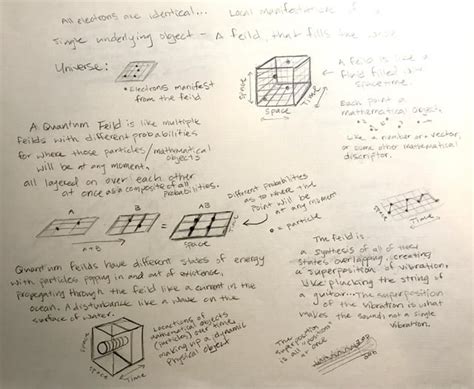 All electrons are identical... Local manifestations of
Single underlying object = A feild, that fills the
Universe:
• Electrons manifest
from the feild
Space
Space
Time
A feild is like a
fluid filled with
spacetime.
Each point a
mathematical object.
Like a number or a vector,
or some other mathematical
descriptor.
A Quantum Feild is like multiple
feilds with different probabilities
for where those particles/mathmatical
objects
will be at any moment,
all layered on over each other
at once as a composite of all
probabilities.
A
B
AB
+
=
A+B
Space
Time
Different Probabilities
as to where the
Point will be
at any moment
• = particle
Time
Quantum Feilds have different states of energy
with particles popping in and out of existence,
propegating through the feild like a current in the
ocean. A disturbance like a wave on the
surface of water.
The feild is
a synthesis of all of these
states overlapping, creating
a superposition of vibration,
like plucking the string of
a guitar... The superposition
of the vibration is what
makes the sound, not a single
vibration.
Space
Time
Locations of
mathematical objects
(particles) over time,
making up a dynamic
Physical object
The
superposition
is all "positions"
at once